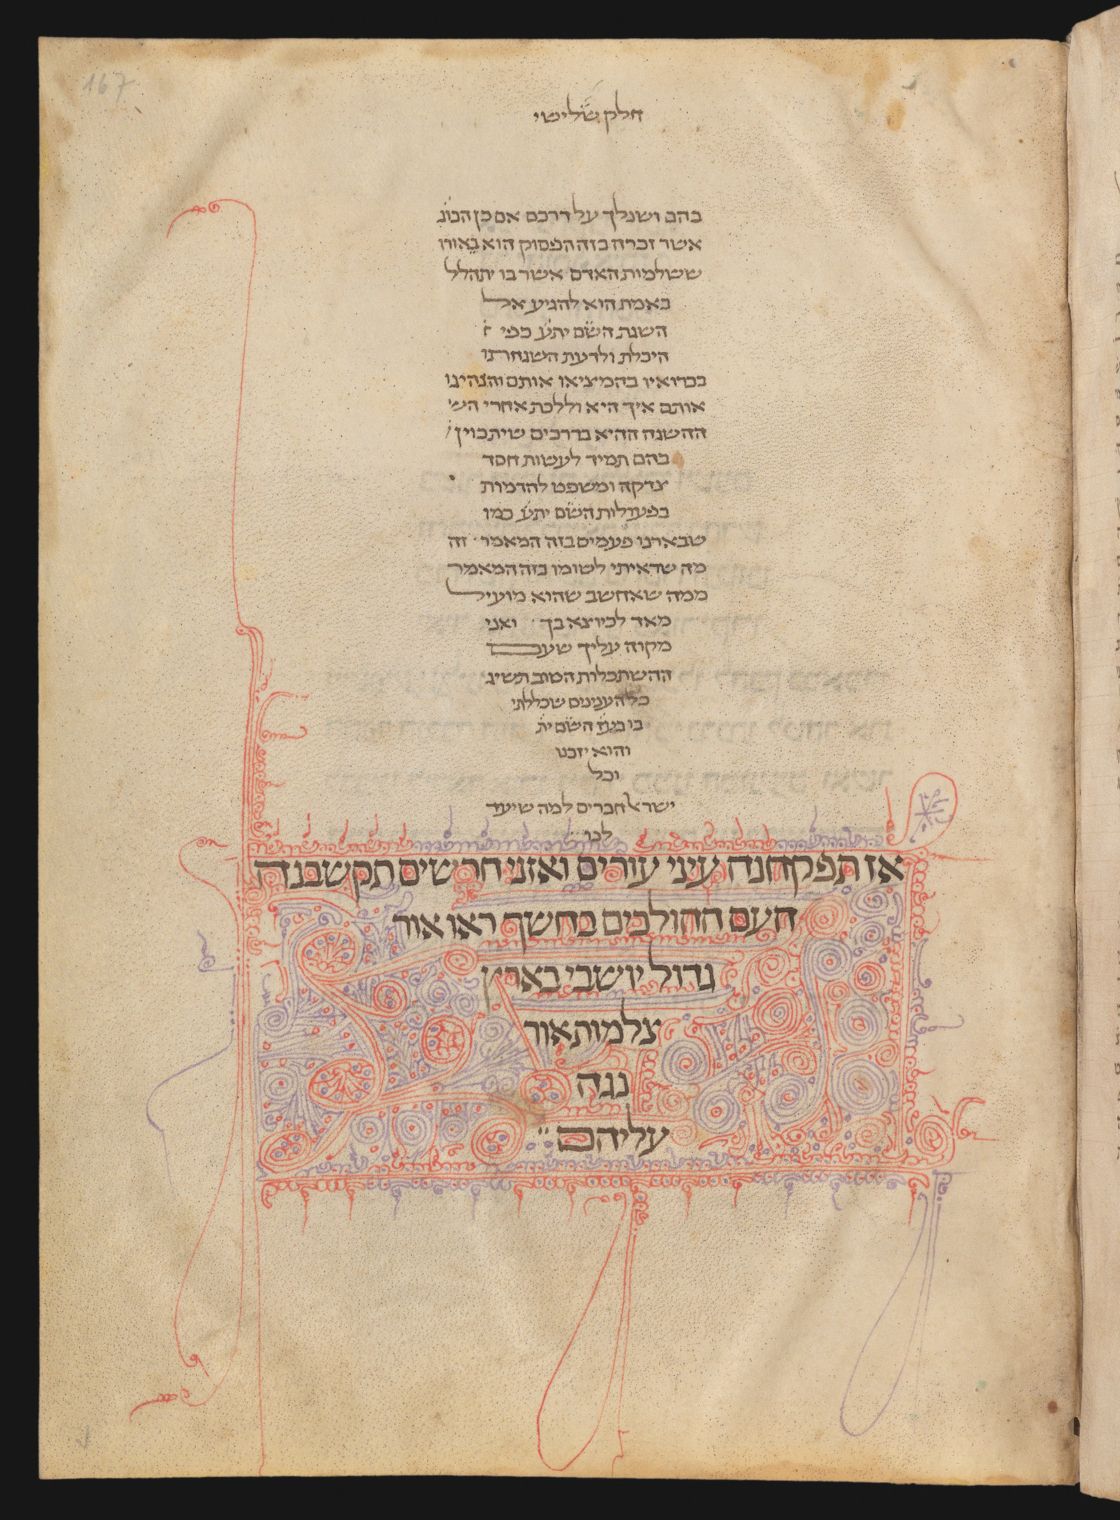 167
חלק שלישי
בהם ושנלך על דרכם אם כן הכונ
אשר זכרה בזה הפסוק הוא באורו
ששלמות האדם אשר בו יתהלל
באמת הוא להגיע אל
השגת השם ית׳ כפי
היכלת ולדעת השגחתו
בברואיו בהמציאו אותם והנהיגו
אותם איך היא וללכת אחרי הש׳
ההשגה ההיא בדרכים שיתכוין
בהם תמיד לעשות חסד
צדקה ומשפט להדמות
בפעולות השם ית׳ כמו
שבארנו פעמים בזה המאמר זה
מה שראיתי לשומו בזה המאמר
ממה שאחשב שהוא מועיל
מאד לכיוצא בך ואני
מקוה עליך שעם
ההשתכלות הטוב תשיג
כל הענינים שכללתי
בו בעז׳ השם ית׳
והוא יזכנו
וכל
ישר׳ חברים למה שיעד
לנו
אז תפקחנה עיני עורים ואזני חרשים תקשבנה
העם ההולכים בחשך ראו אור
גדול יושבי בארץ
צלמות אור
נגה
עליהם